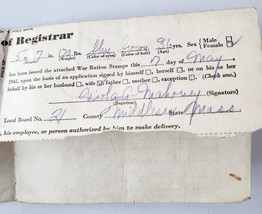 of Registrar
5 ft. 7 in. 170 lbs. blue gray 91 yrs. Sex { Male Female
(Weight) (Color of eyes) (Color of hair) (Age)
has been issued the attached War Ration Stamps this 7 day of May
1942, upon the basis of an application signed by himself, herself, or on his or her
behalf by his or her husband, wife, father, mother, exception. (Check one.)
Mahoney (Signature)
(Registrar)
Local Board No. 21 County Middlesex State Mass
, his employee, or person authorized by him to make delivery.